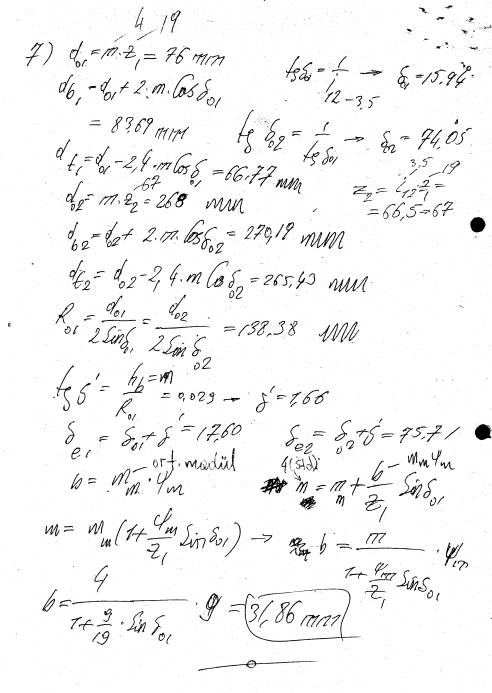 4 19
7) d₀₁ = m·z₁ = 76 mm
tgδ₀₁ = 1/i₁₂ → δ₀₁ = 15.94°
3,5
d_b₁ = d₀₁ + 2·m·Cosδ₀₁
= 83,69 mm
tg δ₀₂ = 1/tgδ₀₁ → δ₀₂ = 74,05°
d_t₁ = d₀₁ - 2,4·m Cosδ₀₁ = 66.77 mm
3,5 19
z₂ = i₁₂·z₁ =
= 66,5 = 67
67
d₀₂ = m·z₂ = 268 mm
d_b₂ = d₀₂ + 2·m·Cosδ₀₂ = 270,19 mm
d_t₂ = d₀₂ - 2,4·m Cosδ₀₂ = 265,43 mm
R₀₁ = d₀₁/2Sinδ₀₁ = d₀₂/2Sinδ₀₂ = 138,38 mm
tgδ' = h_b=m/R₀₁ = 0,029 → δ' = 1,66
δe₁ = δ₀₁ + δ' = 17,60
δe₂ = δ₀₂ + δ' = 75.71
ort. modül
b = mₘ·ψₘ
4(std)
mₘψₘ
m = mₘ + b/z₁ Sinδ₀₁
m = mₘ(1 + ψₘ/z₁ Sinδ₀₁) → b = m/(1 + ψₘ/z₁ Sinδ₀₁) · ψₘ
b = 4/(1 + 9/19 · Sinδ₀₁) · 9 = 31,86 mm